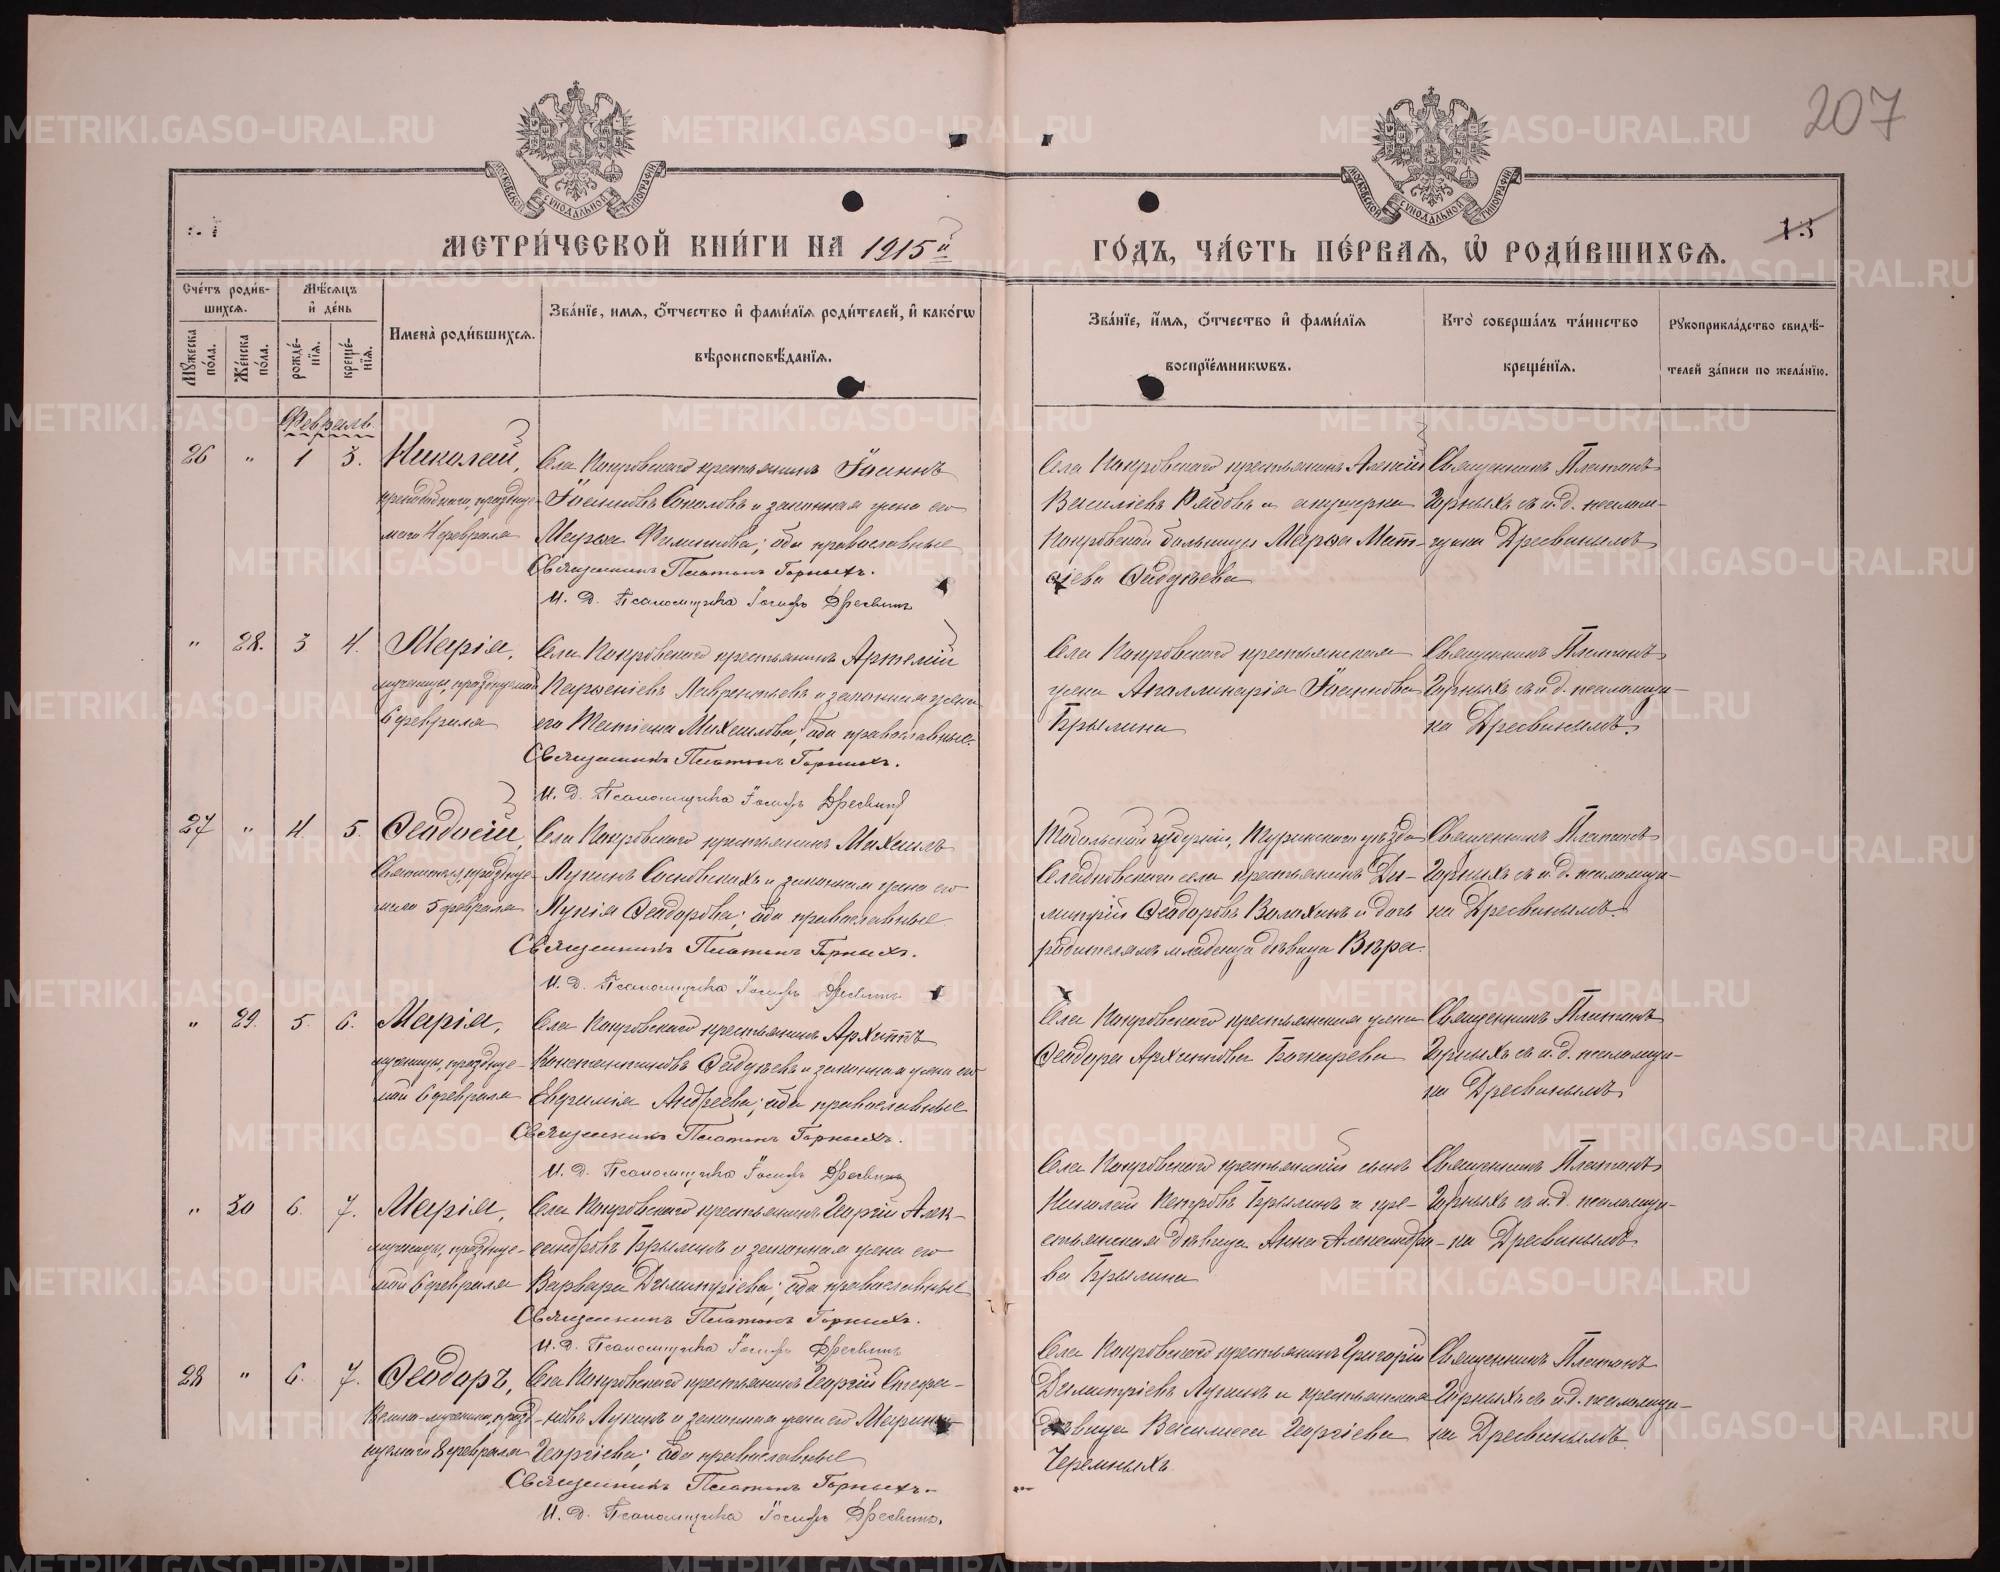 207
МОСКОВСКОЙ СΥНОДАЛЬНОЙ ТИПОГРАФІИ
МОСКОВСКОЙ СΥНОДАЛЬНОЙ ТИПОГРАФІИ
МЕТРИ́ЧЕСКОЙ КНИ́ГИ НА 1915й
ГО́ДЪ, ЧА́СТЬ ПЕ́РВАѦ, Ѡ҆ РОДИ́ВШИХСѦ.
13
Сче́тъ роди́в-
шихсѧ.
Мꙋжеска по́ла.
Же́нска по́ла.
Мѣ́сѧцъ
и҆ де́нь
рожде́-
нїѧ.
креще́-
нїѧ.
Имена̀ роди́вшихсѧ.
Зва́нїе, имѧ, ѻ҆́тчество и҆ фами́лїѧ роди́телей, и҆ како́гѡ
вѣроисповѣ́данїѧ.
Зва́нїе, и҆́мѧ, ѻ҆́тчество и҆ фами́лїѧ
воспрїе́мникѡвъ.
Кто̀ соверша́лъ та́инство
креще́нїѧ.
Рꙋкоприкла́дство свидѣ́-
телей за́писи по жела́нїю.
Февраль
26 " 1 3. Николай,
преподобнаго, праздвуе-
маго 4 февраля
Села Покровскаго крестьянинъ Іоаннъ
Іоанновъ Соколовъ и законная жена его
Марѳа Филиппова; оба православные
Священникъ Платонъ Горныхъ.
И. Д. Псаломщика Іосифъ Дресвинъ
Села Покровскаго крестьянинъ Алексій
Васильевъ Рябовъ и акушерка
Покровской больницы Марѳа Мат-
ѳіева Ѳадѣева
Священникъ Платонъ
Горныхъ съ и. д. псалом-
щика Дресвинымъ
" 28. 3 4. Марія,
мученицы, празднуемой
6 февраля
Села Покровскаго крестьянинъ Артемій
Парѳеніевъ Лаврентьевъ и законная жена
его Татіана Михаилова; оба православные.
Священникъ Платонъ Горныхъ.
И. Д. Псаломщика Іосифъ Дресвинъ
Села Покровскаго крестьянская
жена Аполлинарія Іоаннова
Брылина
Священникъ Платонъ
Горныхъ съ и. д. псаломщи-
ка Дресвинымъ.
27 " 4 5. Ѳеодосій,
Святителя, праздвуе-
маго 5 февраля
Села Покровскаго крестьянинъ Михаилъ
Лукинъ Сосновскихъ и законная жена его
Лукія Ѳеодорова; оба православные
Священникъ Платонъ Горныхъ.
И. Д. Псаломщика Іосифъ Дресвинъ
Тобольской губерніи, Туринскаго уѣзда
села крестьянинъ Ди-
митрій Ѳеодоровъ Волохинъ и дочь
родителямъ младенца дѣвица Вѣра.
Священникъ Платонъ
Горныхъ съ и. д. псаломщи-
ка Дресвинымъ.
" 29. 5. 6. Марія,
мученицы, празднуе-
мой 6 февраля
Села Покровскаго крестьянинъ Архиппъ
Константиновъ Ѳадѣевъ и законная жена его
Евфимія Андреева; оба православные
Священникъ Платонъ Горныхъ.
И. Д. Псаломщика Іосифъ Дресвинъ
Села Покровскаго крестьянская жена
Ѳеодора Архиппова Бачкарева
Священникъ Платонъ
Горныхъ съ и. д. псаломщи-
ка Дресвинымъ
" 30 6. 7. Марія,
мученицы, празднуе-
мой 6 февраля
Села Покровскаго крестьянинъ Георгій Алек-
сандровъ Брылинъ и законная жена его
Варвара Димитріева; оба православные
Священникъ Платонъ Горныхъ.
И. Д. Псаломщика Іосифъ Дресвинъ
Села Покровскаго крестьянскій сынъ
Николай Петровъ Брылинъ и кре-
стьянская дѣвица Анна Александро-
ва Брылина
Священникъ Платонъ
Горныхъ съ и. д. псаломщи-
ка Дресвинымъ
28 " 6. 7. Ѳеодоръ,
Велико-мученика, празд-
нуемаго 8 февраля
Села Покровскаго крестьянинъ Георгій Стефа-
новъ Лукинъ и законная жена его Марина
Георгіева; оба православные
Священникъ Платонъ Горныхъ.
И. Д. Псаломщика Іосифъ Дресвинъ.
Села Покровскаго крестьянинъ Григорій
Димитріевъ Лукинъ и крестьянская
дѣвица Василисса Георгіева
Черемныхъ
Священникъ Платонъ
Горныхъ съ и. д. псаломщи-
ка Дресвинымъ